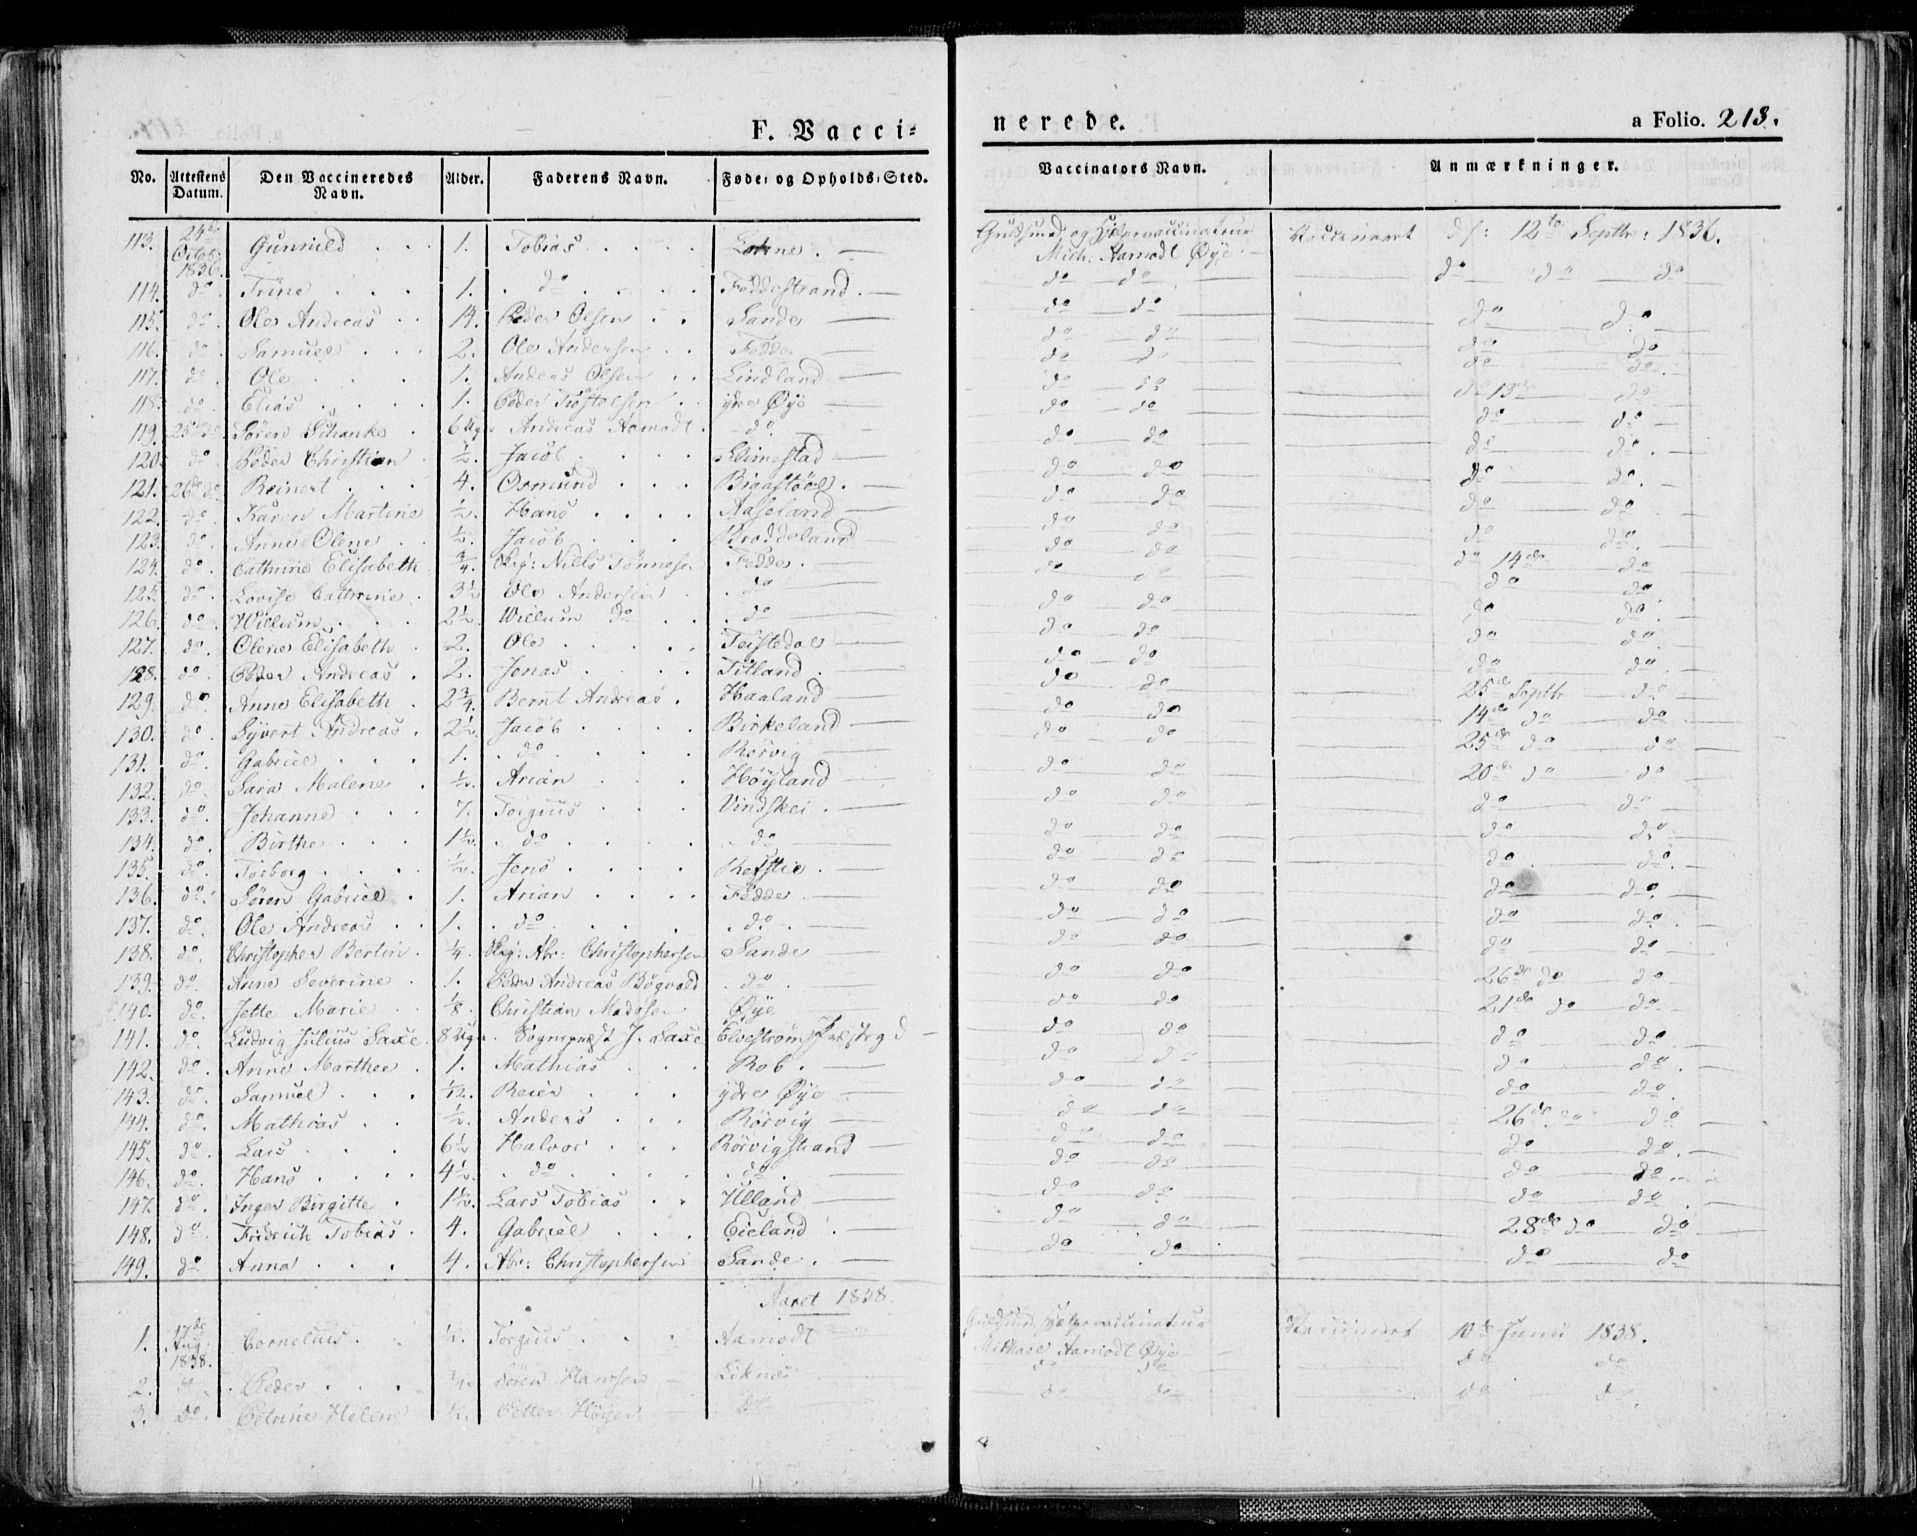 F. Vacci=
nerede.
a Folio. 213.
No. Attestens Datum. Den Vaccineredes Navn. Alder. Faderens Navn. Føde= og Opholds=Sted. Vaccinators Navn. Anmærkninger.
113. 24de Octbr: 1836. Gunnild 1. Tobias
og Hjelpevaccinateur Mich: Aamodt Øye Vaccineert d: 12te Septbr: 1836.
114. do. Trine 1. do Feddestrand. do do do do do
115. do. Ole Andreas 14. Peder Olsen Sande do do do do
116. do. Samuel 2. Ole Andersen Fedde do do do do
117. do. Ole 1. Anders Olsen Lindland do do do do
118. do. Elias 1. Peder ydre Øye do do do 13de do
119. 25de do. Søren Schanke 6 Ugr Andreas Aamodt. do. do do do do
120. do. Peder Christian ½. Jacob do do do do
121. 26de do. Reinert 4. Osmund do do do do
122. do. Karen Martine ½. Hans Aaseland do do do do
123. do. Anne Olene ½. Jacob Broddeland do do do do
124. do. Cathrine Elisabeth ¾. Nills Tønnesen Fedde. do do do 14de do
125. do. Lovise Cathrine 3½ Ole Andersen do do do do do
126. do. Willum 2½. Willum do do do do do do
127. do. Olene Elisabeth 2. Ole Feistedal do do do do
128. do. Peder Andreas. 2. Jonas Titland. do do do do
129. do. Anne Elisabeth 2¾. Bernt Andreas. Haaland do do 25de Septbr do
130. do. Syvert Andreas. 2½. Jacob Birkeland do do 14de do do
131. do. Gabriel 1. do Rørvig do do 25de do do
132. do. Sara Malene ½. Arian Høyland do do 20de do do
133. do. Johanne 7. Torgius Vindskei. do do do do
134. do. Birthe 1½. do do do do do do
135. do. Torborg ½. Jens Refstie do do do do
136. do. Søren Gabriel 1. Arian Fedde do do do do
137. do. Ole Andreas 1. do do. do do do do
138. do. Christopher Bertin ¼. Abr: Christophersen Sande do do do do
139. do. Anne Severine 1. Peder Andreas Bøgvald do. do do 26de do do
140. do. Jette Marie ⅛. Christian Madssen Øye do do 21de do do
141. do. Ludvig Julius Saxe. 8 Ugr. Sognepræst J. Saxe Præstegd do do do do
142. do. Anne Marthee 1. Mathias Rob. do do do do
143. do. Samuel 1/12. Reier ydre Øye do do do do
144. do. Mathias ½. Anders Rørvig do do 26de do do
145. do. Lars 6½ Halvor Rørvigstrand do do do do
146. do. Hans 4½. do do. do do do do
147. do. Inger Birgitte 1½. Lars Tobias Ulland do do do do
148. do. Fredrich Tobias 4. Gabriel Eieland do do 28de do do
149. do. Anna 4. Abr: Christophersen Sande. do do do do
Aaret 1838.
1. 17de Aug: 1838. Cornelius. Torgius Aamodt Hjelpevaccinateur Michael Aamodt Øye Vaccineert 10de Junii 1838.
2. do. Peder Søren Hansen do do do do
3. do. Petrine Helene Petter do do do do do